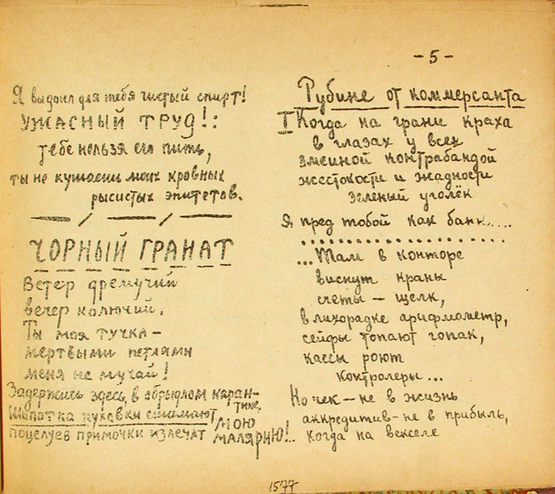 Я выдоил для тебя чистый спирт!
УЖАСНЫЙ ТРУД!:
тебе нельзя его пить,
ты не кушаешь моих кровных
рысистых эпитетов.
ЧОРНЫЙ ГРАНАТ
Ветер дремучий
вечер колючий.
Ты моя тучка—
мертвыми петлями
меня не мучай!
Задержись здесь, в обрыдлом каран-
тине,
Шопотка куковки сломают
МОЮ
поцелуев примочки излечат
МАЛЯРИЮ!..
-5-
Рубине от коммерсанта
I Когда на грани краха
в глазах у всех
змеиной контрабандой
жестокости и жадности
зеленый уголёк
Я пред тобой как банк....
...Там в конторе
виснут краны
счеты — щелк,
в лихорадке арифмометр,
сейфы топают гопак,
кассы роют
контролеры...
Но чек — не в жизнь
аккредитив — не в прибыль,
когда на векселе
1577